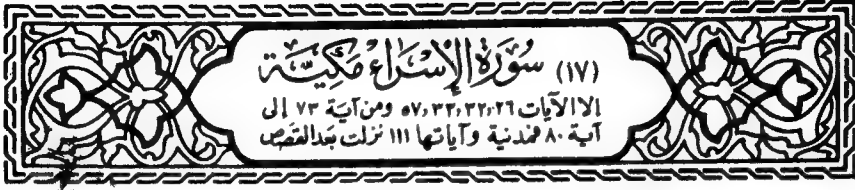 (١٧) سُورَة الإِسْرَاء مَكيَّة
إلا الآيات ٢٦، ٣٢، ٣٣، ٥٧ ومن آية ٧٣ إلى
آية ٨٠ فمدنية وآياتها ١١١ نزلت بعد القصص